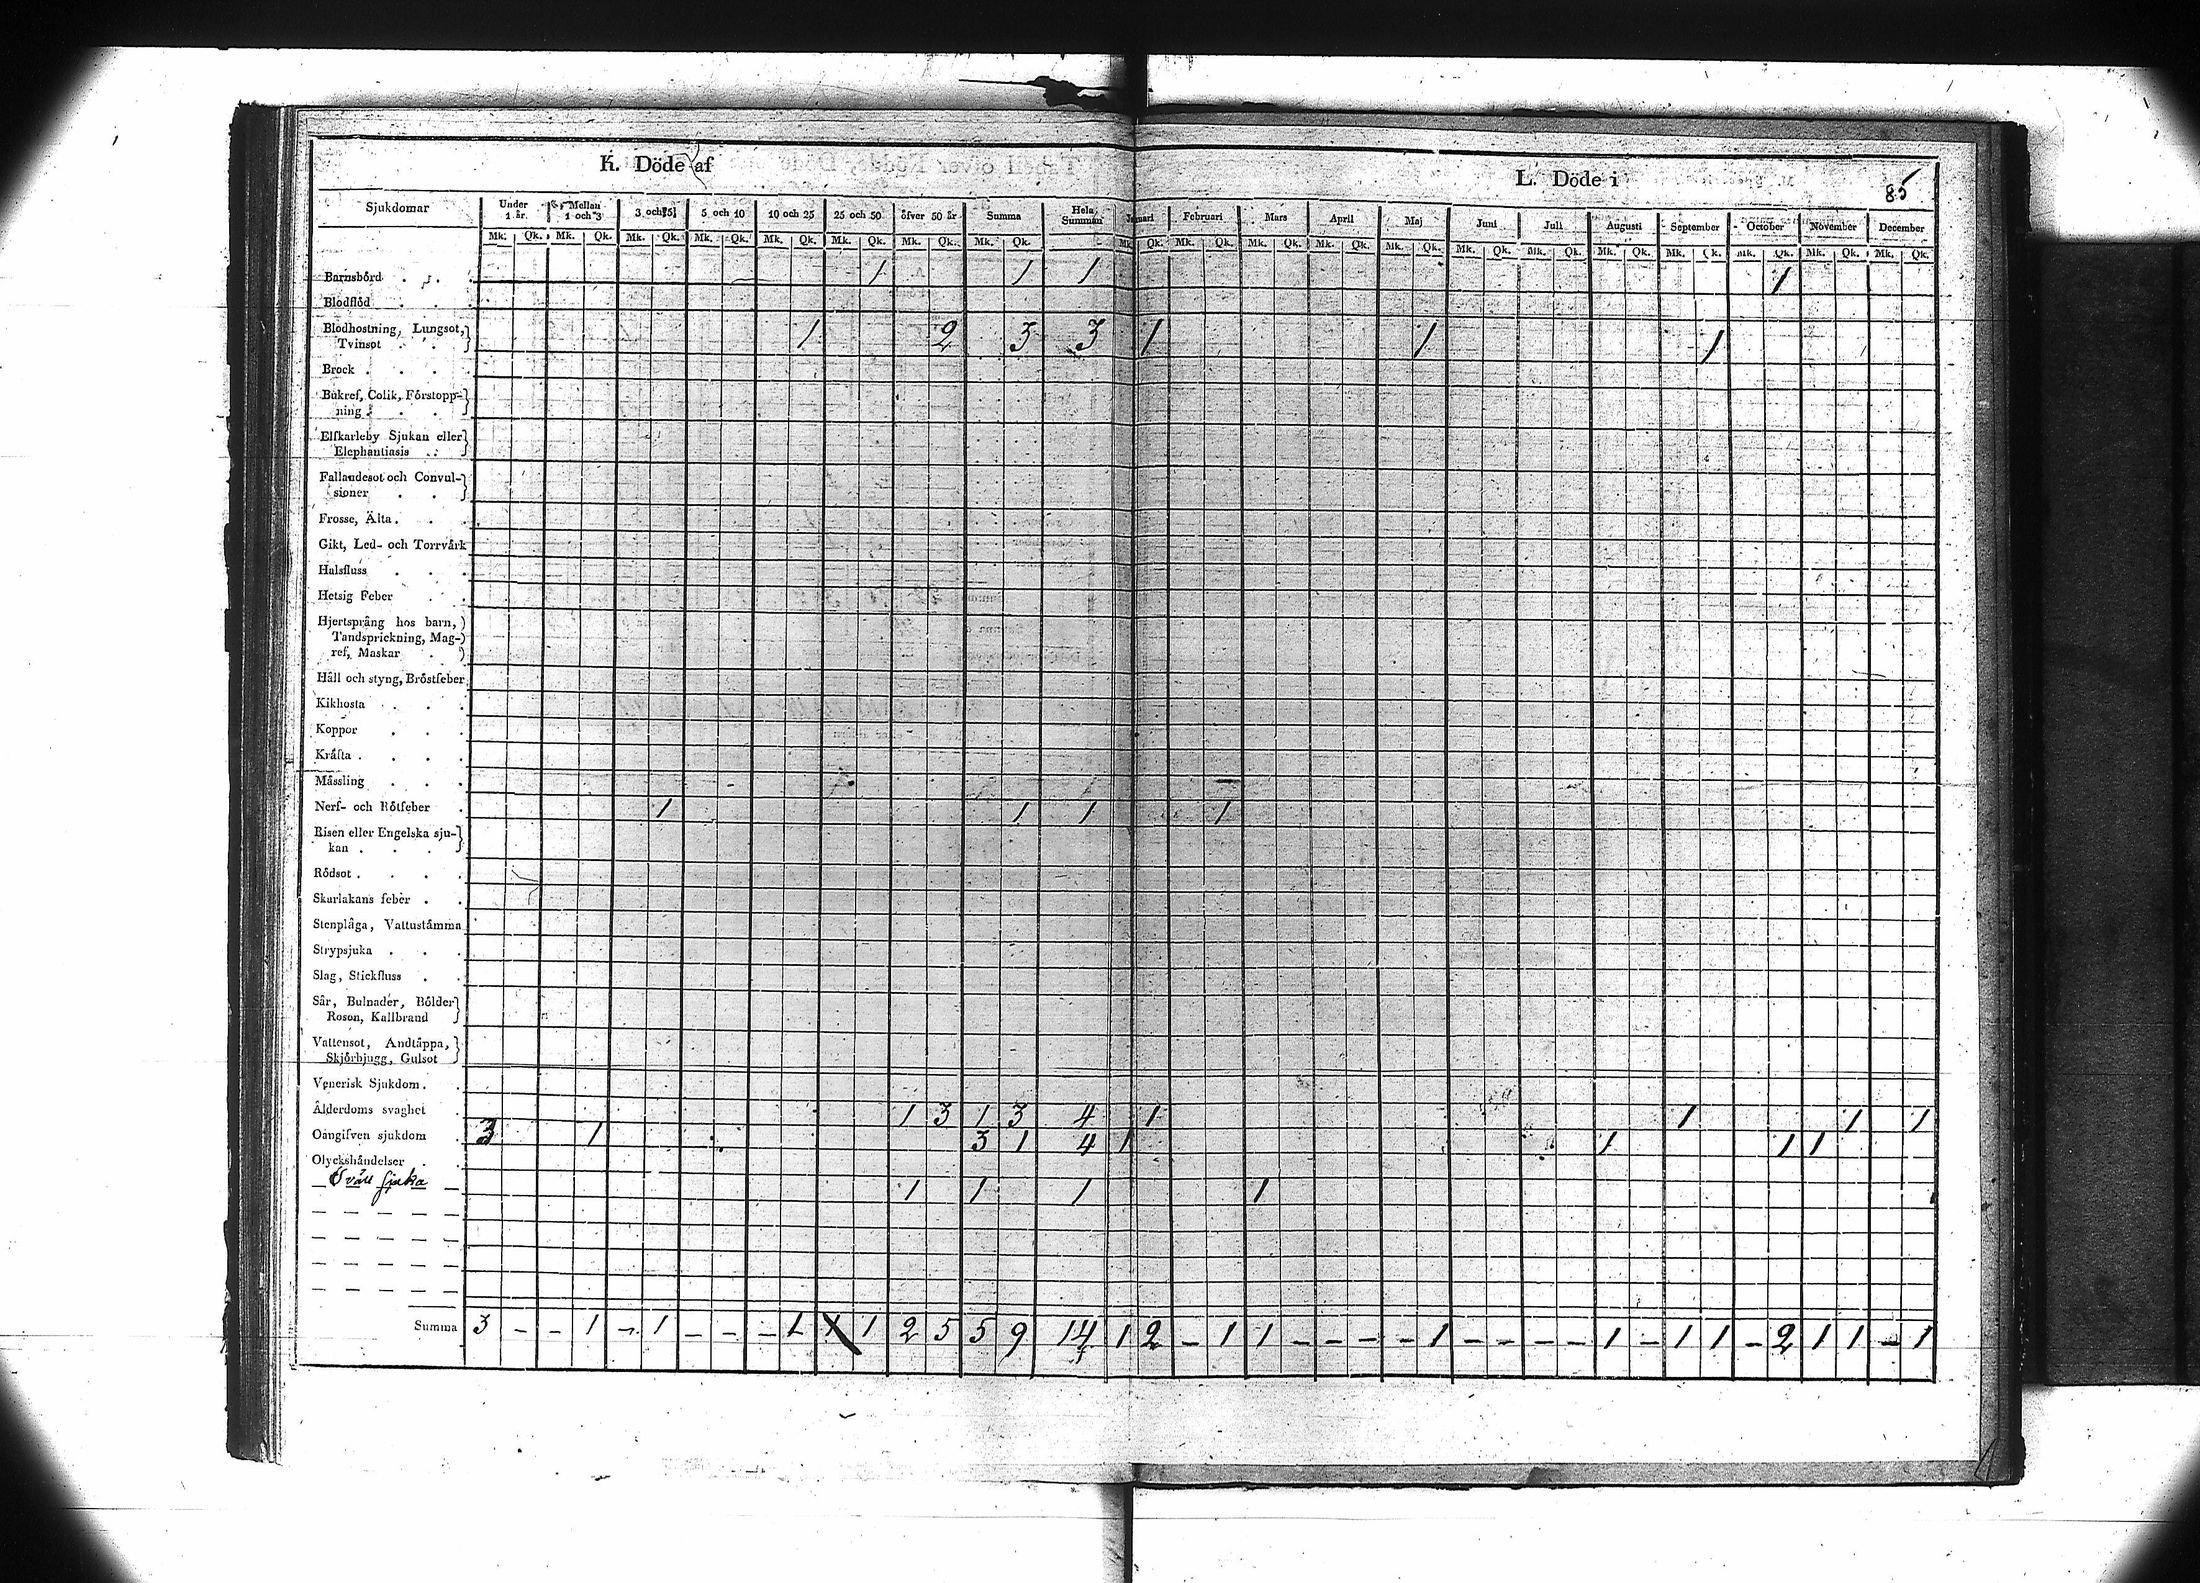 K. Döde af
L. Döde i
85
Sjukdomar Under 1 år. Mellan 1 och 3 3 och 5 5 och 10 10 och 25 25 och 50 öfver 50 år Summa Hela Summan Januari Februari Mars April Maj Juni Juli Augusti September October November December
Mk. Qk. Mk. Qk. Mk. Qk. Mk. Qk. Mk. Qk. Mk. Qk. Mk. Qk. Mk. Qk. Mk. Qk. Mk. Qk. Mk. Qk. Mk. Qk. Mk. Qk. Mk. Qk. Mk. Qk. Mk. Qk. Mk. Qk. Mk. Qk. Mk. Qk. Mk. Qk.
Barnsbörd 1 1 1 1
Blodflöd
Blodhostning, Lungsot,
Tvinsot 1 2 3 3 1 1 1
Brock
Bukref, Colik, Förstopp-
ning
Elfkarleby Sjukan eller
Elephantiasis
Fallandesot och Convul-
sioner
Frosse, Älta
Gikt, Led- och Torrvärk
Halsfluss
Hetsig Feber
Hjertsprång hos barn,
Tandsprickning, Mag-
ref, Maskar
Håll och styng, Bröstfeber
Kikhosta
Koppor
Kräfta
Mässling
Nerf- och Rötfeber 1 1 1 1
Risen eller Engelska sju-
kan
Rödsot
Skarlakans feber
Stenplåga, Vattustämma
Strypsjuka
Slag, Stickfluss
Sår, Bulnader, Bölder
Roson, Kallbrand
Vattensot, Andtäppa,
Skjörbjugg, Gulsot
Venerisk Sjukdom
Ålderdoms svaghet 1 3 1 3 4 1 1 1 1
Oangifven sjukdom 3 1 3 1 4 1 1 1 1
Olyckshändelser
sjuka 1 1 1 1
Summa 3 - - 1 - 1 - - - 1 1 2 5 5 9 14 1 2 - 1 1 - - - - 1 - - - - 1 - 1 1 - 2 1 1 - 1